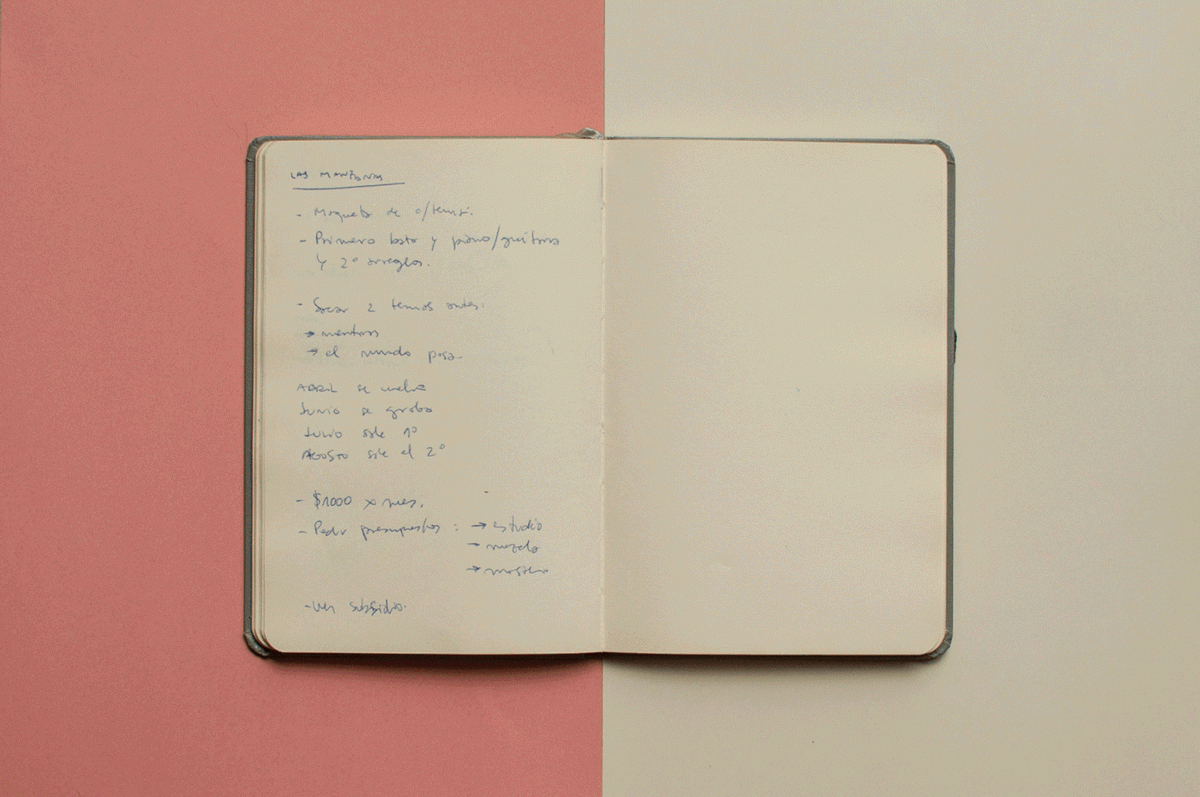 LAS MANZANAS
- Maqueta de c/tema.
- Primero bata y piano/guitarra
y 2º arreglos.
- Sacar 2 temas antes.
→ mentiras
→ el mundo pasa.
ABRIL se
JUNIO se graba
JULIO sale 1º
AGOSTO sale el 2º
- $1000 x mes.
- Pedir presupuestos : → estudio
→ mezcla
→ master
- Ver subsidio.